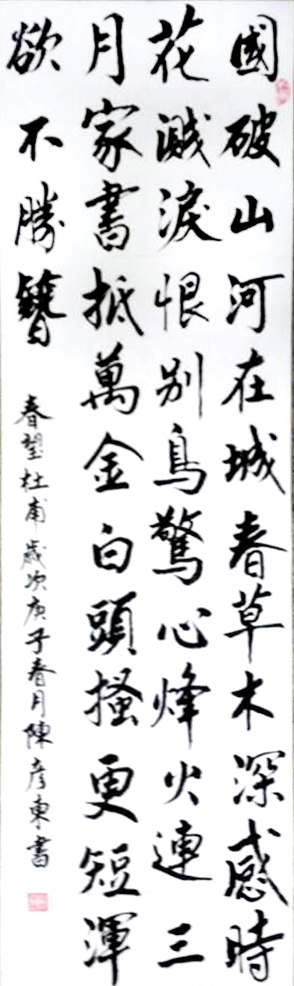 國破山河在城春草木深感時
花濺淚恨别鳥驚心烽火連三
月家書抵萬金白頭搔更短渾
欲不勝簪
春望杜甫歲次庚子春月陳彥東書